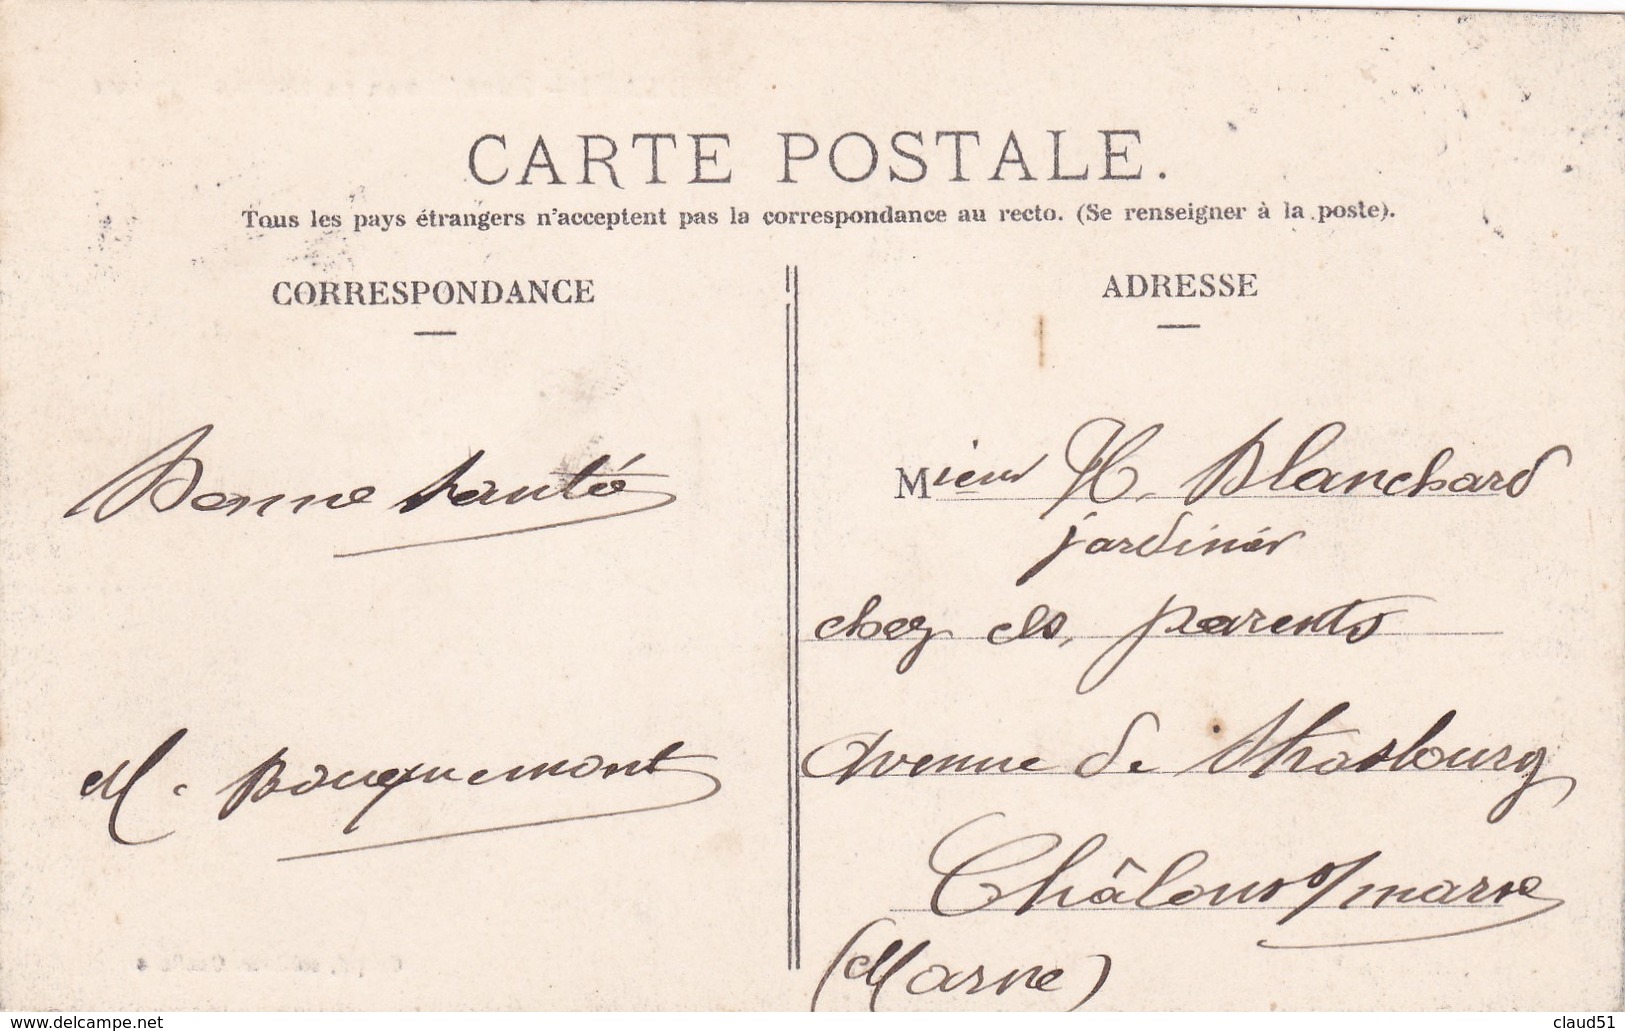 CARTE POSTALE.
Tous les pays étrangers n'acceptent pas la correspondance au recto. (Se renseigner à la poste).
CORRESPONDANCE
Bonne santé
M. Bouquemont
ADRESSE
Mieur H. Blanchard
jardinier
chez ses parents
Avenue de Strasbourg
Châlons s/ marne
(Marne)
www.delcampe.net
claud51